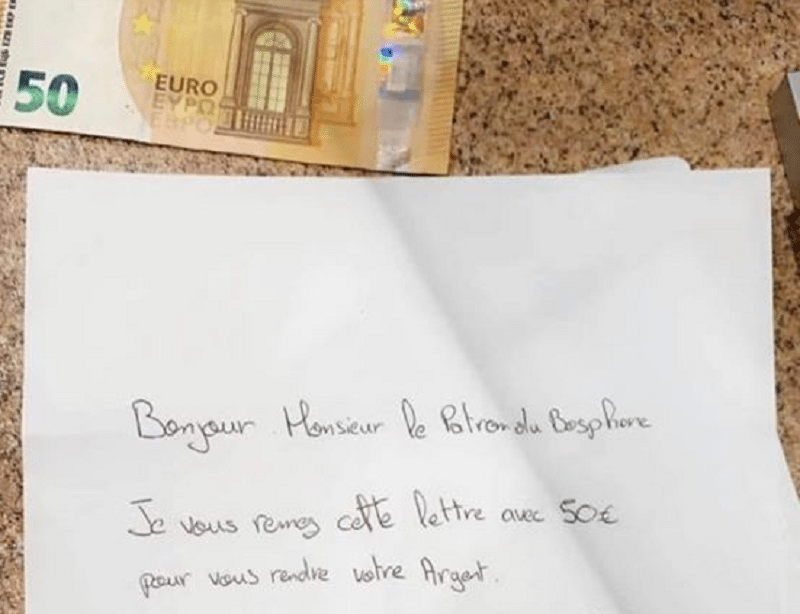 50
EURO
ΕΥΡΩ
Bonjour Monsieur le Patron du Bosphore
Je vous remez cette lettre avec 50€
pour vous rendre votre Argent.